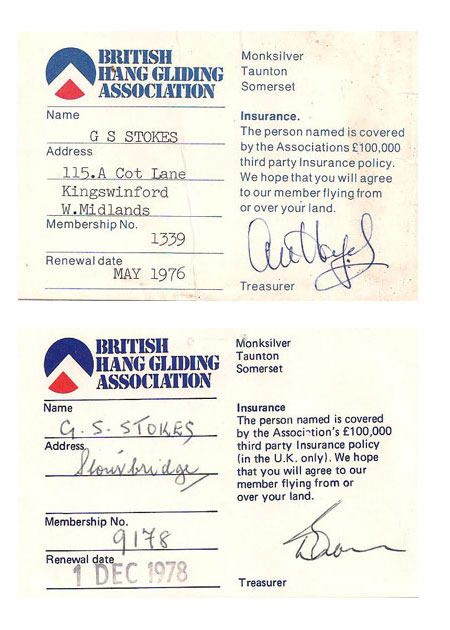 BRITISH
HANG GLIDING
ASSOCIATION
Name
G S STOKES
Address
115.A Cot Lane
Kingswinford
W.Midlands
Membership No.
1339
Renewal date
MAY 1976
Monksilver
Taunton
Somerset
Insurance.
The person named is covered
by the Associations £100,000
third party Insurance policy.
We hope that you will agree
to our member flying from
or over your land.
Treasurer
BRITISH
HANG GLIDING
ASSOCIATION
Name
G. S. STOKES
Address
Stourbridge
Membership No.
9178
Renewal date
1 DEC 1978
Monksilver
Taunton
Somerset
Insurance
The person named is covered
by the Association's £100,000
third party Insurance policy
(in the U.K. only). We hope
that you will agree to our
member flying from or
over your land.
Treasurer